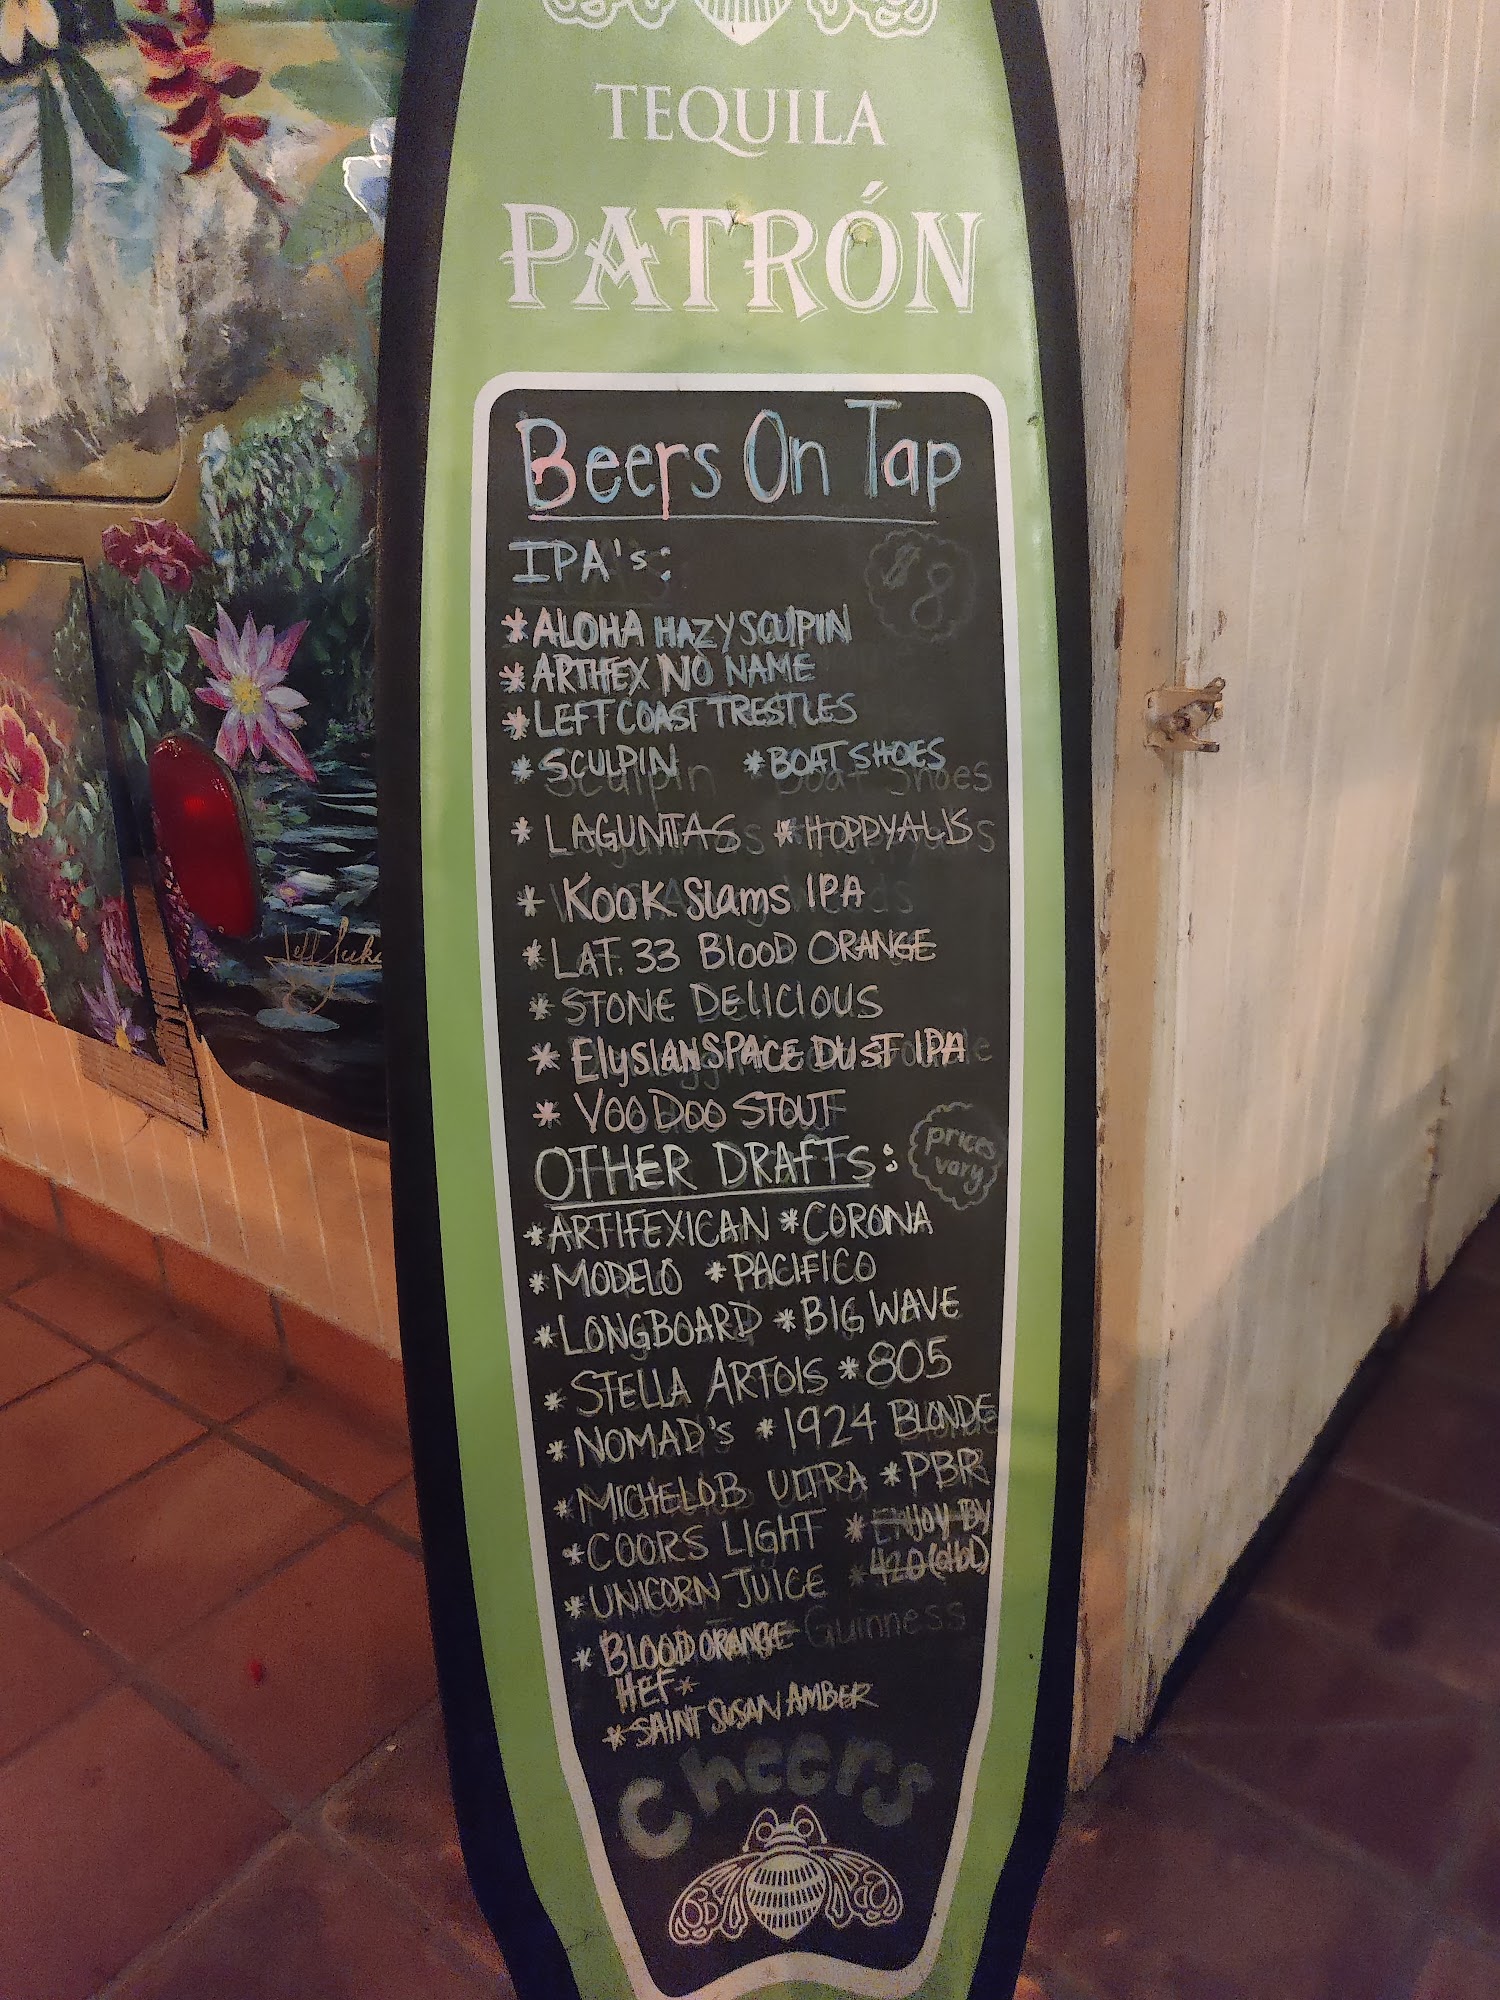 TEQUILA
PATRÓN
Beers On Tap
IPA's:
$8
*ALOHA HAZY SCULPIN
*ARTIFEX NO NAME
*LEFT COAST TRESTLES
*SCULPIN *BOAT SHOES
*LAGUNITAS *HOPPYALIS
*KOOK Slams IPA
*LAT. 33 Blood ORANGE
*STONE DELICIOUS
*Elysian SPACE DUST IPA
*VOODOO STOUT
OTHER DRAFTS:
prices
vary
*ARTIFEXICAN *CORONA
*MODELO *PACIFICO
*LONGBOARD *BIG WAVE
*STELLA ARTOIS *805
*NOMAD'S *1924 BLONDE
*MICHELOB ULTRA *PBR
*COORS LIGHT *ENJOY BY
*UNICORN JUICE *420
*BLOOD ORANGE Guinness
HEF*
*SAINT SUSAN AMBER
Cheers